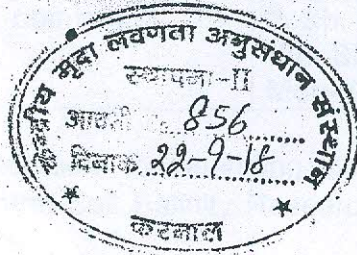 केन्द्रीय मृदा लवणता अनुसंधान संस्थान
स्थापना-II
आवती 856
दिनांक 22-9-18
करनाल